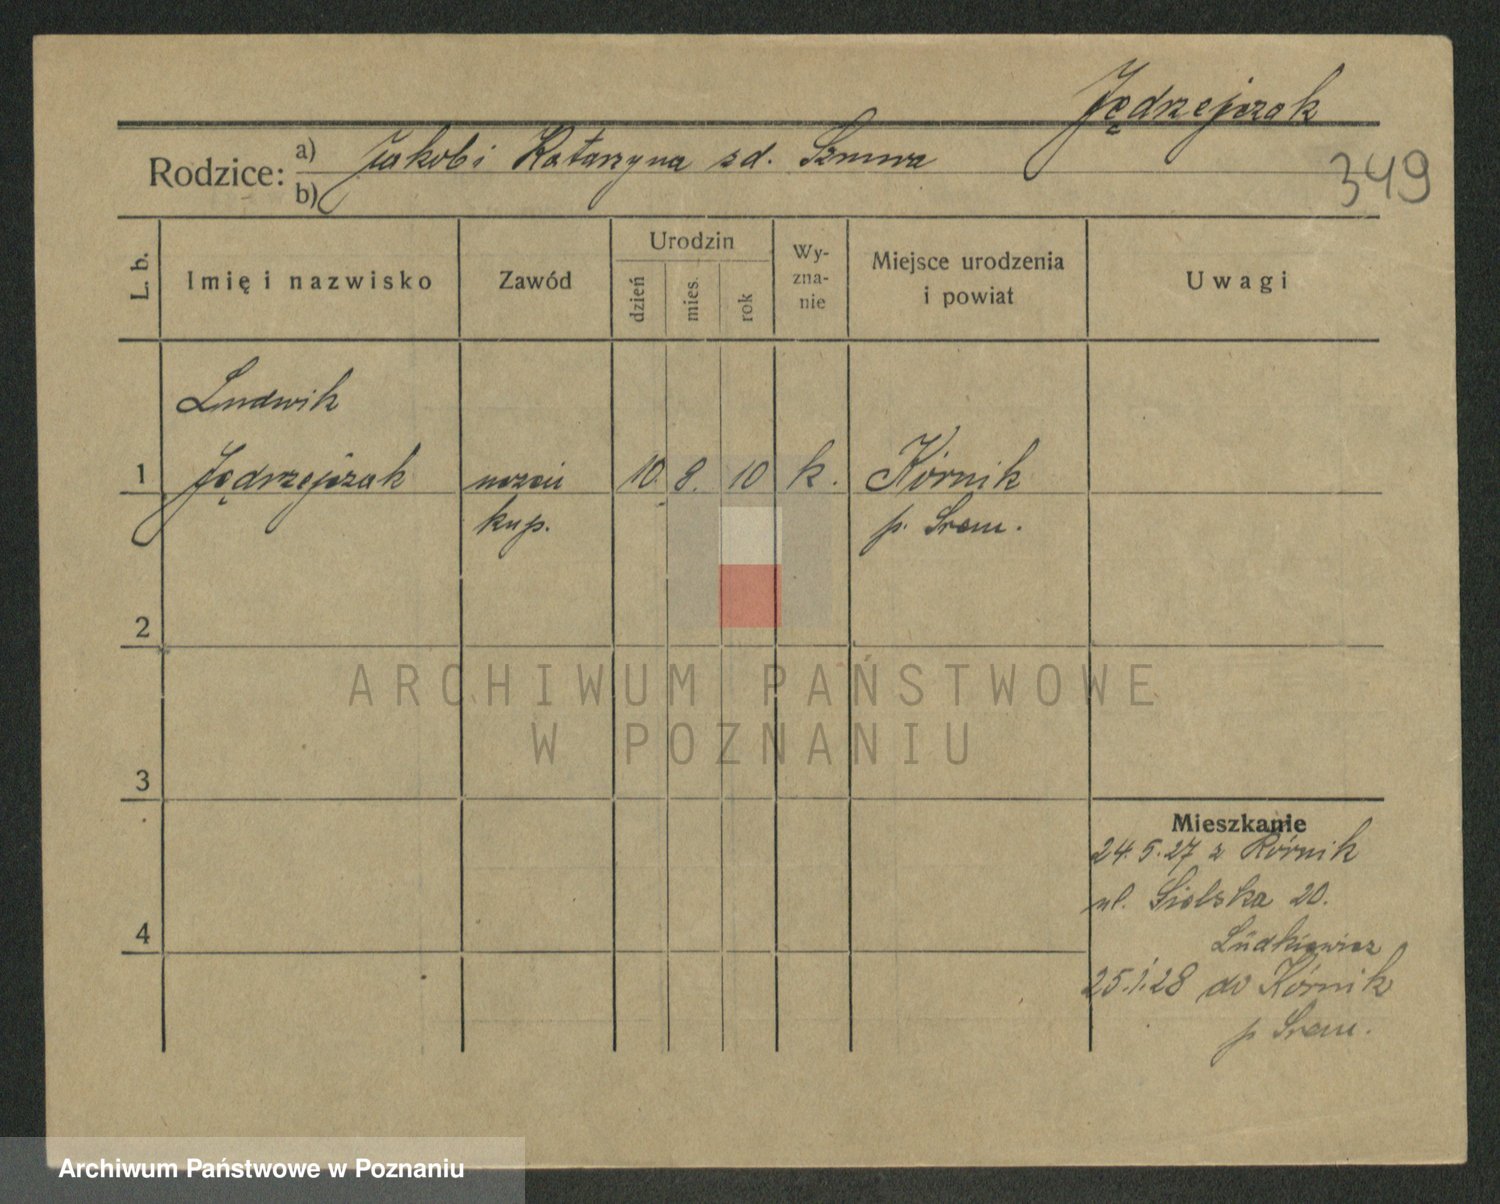 Jędrzejczak
349
Rodzice: a) Jakob i Katarzyna zd. Szmura
b)
L. b.
Imię i nazwisko
Zawód
Urodzin
dzień
mies.
rok
Wy-
zna-
nie
Miejsce urodzenia
i powiat
Uwagi
Ludwik
1 Jędrzejczak uczeń 10. 8. 10 k. Kórnik
kup. p. Śrem.
2
3
4
ARCHIWUM PAŃSTWOWE
W POZNANIU
Mieszkanie
24.5.27 z Kórnik
ul. Sielska 20.
Lüdkiewicz
25.1.28 do Kórnik
p Śrem.
Archiwum Państwowe w Poznaniu